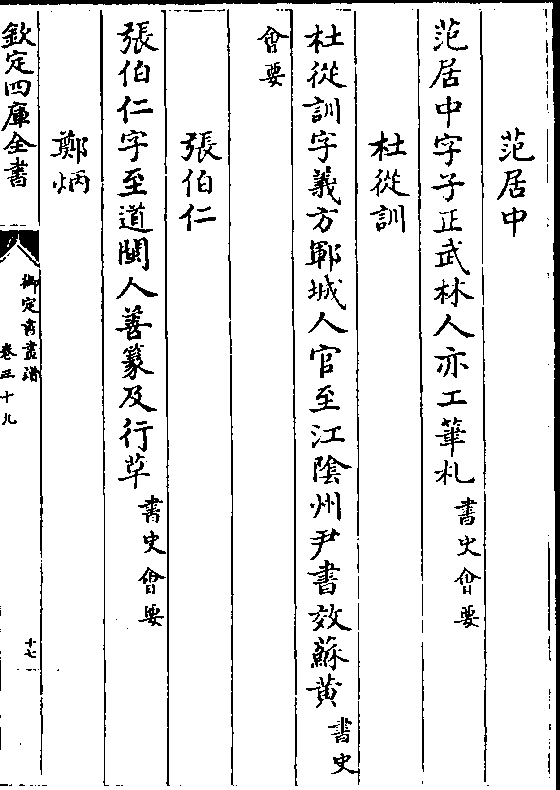 范居中
范居中字子正武林人亦工華札書史會要
杜從訓
杜從訓字義方鄆城人官至江陰州尹書效蘇黃書史
會要
張伯仁
張伯仁字至道閩人善篆及行草書史會要
鄭炳
欽定四庫全書
御定書畫譜
卷五十九
十七